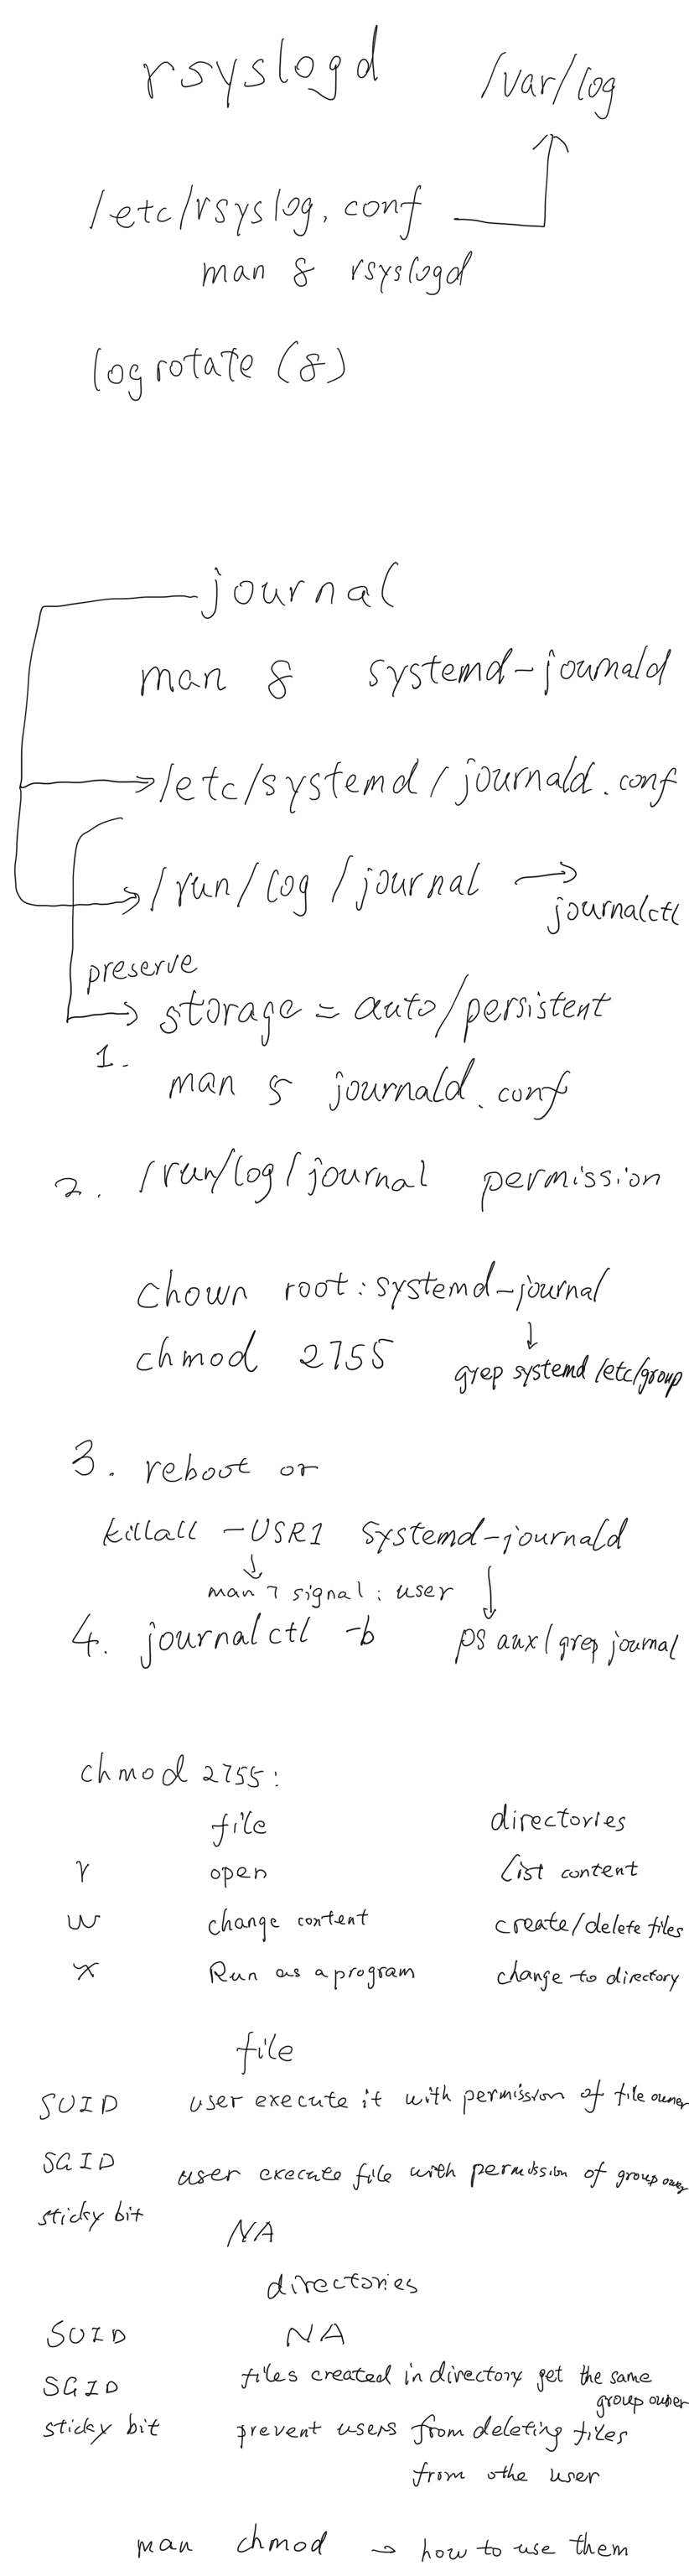 rsyslogd /var/log
/etc/rsyslog.conf
man 8 rsyslogd
logrotate (8)
journal
man 8 systemd-journald
/etc/systemd/journald.conf
/run/log/journal
journalctl
preserve
storage = auto/persistent
1.
man 5 journald.conf
2. /run/log/journal permission
chown root:systemd-journal
chmod 2755 grep systemd /etc/group
3. reboot or
killall -USR1 systemd-journald
man 7 signal : user
4. journalctl -b ps aux | grep journal
chmod 2755:
file directories
r open list content
w change content create/delete files
x Run as a program change to directory
file
SUID user execute it with permission of file owner
SGID user execute file with permission of group owner
sticky bit NA
directories
SUID NA
SGID files created in directory get the same
group owner
sticky bit prevent users from deleting files
from othe user
man chmod → how to use them